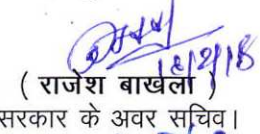 18/2/18
( राजेश बाखेला )
सरकार के अवर सचिव।